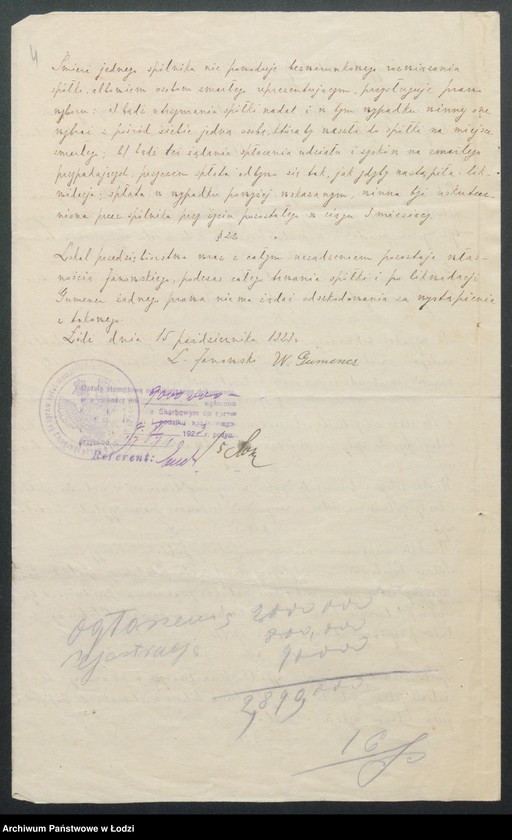 4
Śmierć jednego spólnika nie powoduje bezwarunkowego rozwiązania
spółki, albowiem osobom zmarłego reprezentującym, przysługuje prawo
wyboru: a) bądź utrzymania spółki nadal i w tym wypadku winny one
wybrać z pośród siebie jedną osobę, któraby weszła do spółki na miejsce
zmarłego; b) bądź też żądania spłacenia udziału i zysków na zmarłego
przypadających, przyczem spłata odbywa się tak, jak gdyby nastąpiła lik-
widacja; spłata w wypadku powyżej wskazanym, winna być uskutecz-
niona przez spólnika przy życiu pozostałego w ciągu 3 miesięcy.
§ 22.
Lokal przedsiębiorstwa wraz z całym urządzeniem pozostaje włas-
nością Janowskiego, podczas całego trwania spółki i po likwidacji
Gumener żadnego prawa nie ma żądać odszkodowania za wystąpienie
z takowego.
Łódź dnia 15 października 1923r.
L. Janowski W. Gumener
Opłatę stemplową
w
Skarbowym
192
Referent:
ogłoszenie 2000 000
rejestracja 800,000
90000
2,890,000